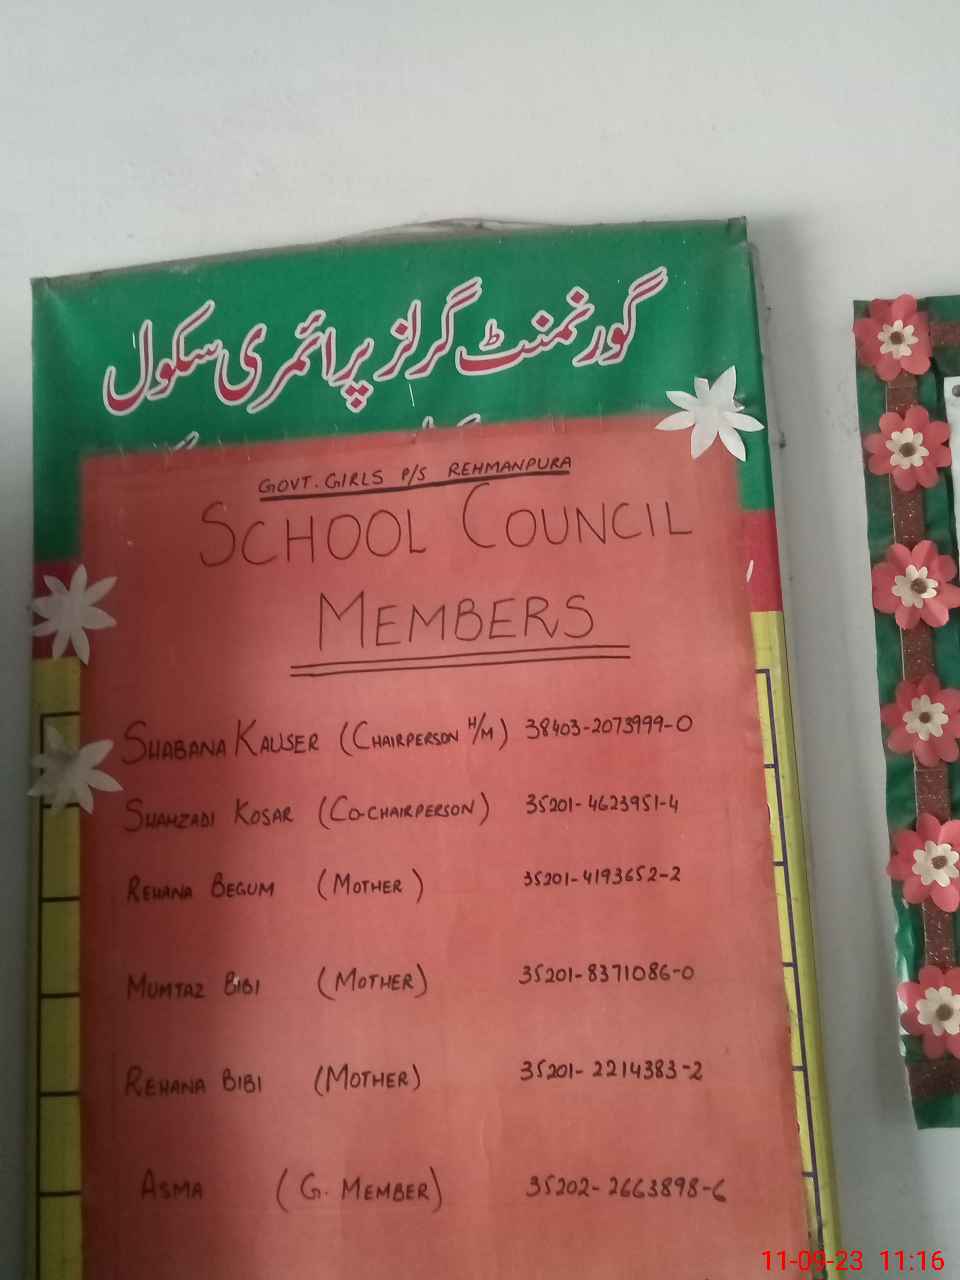 گورنمنٹ گرلز پرائمری سکول
GOVT. GIRLS P/S REHMANPURA
SCHOOL COUNCIL
MEMBERS
SHABANA KAUSER (CHAIRPERSON H/M) 38403-2073999-0
SHAHZADI KOSAR (CO-CHAIRPERSON) 35201-4623951-4
REHANA BEGUM (MOTHER) 35201-4193652-2
MUMTAZ BIBI (MOTHER) 35201-8371086-0
REHANA BIBI (MOTHER) 35201-2214383-2
ASMA (G. MEMBER) 35202-2663898-6
11-09-23 11:16